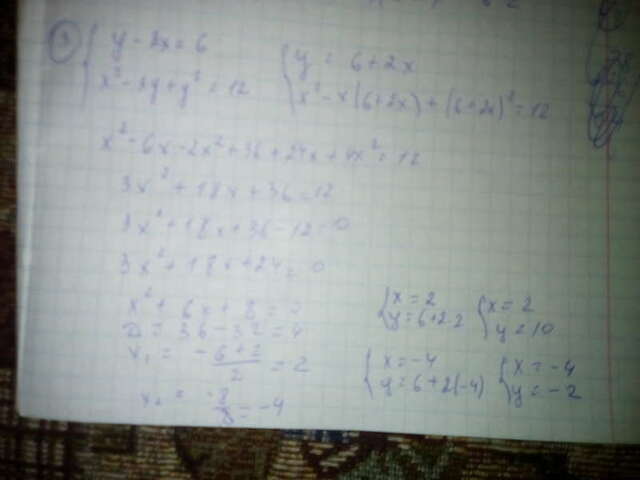 ③ { y - 2x = 6   { y = 6 + 2x
x² - xy + y² = 12   x² - x(6+2x) + (6+2x)² = 12
x² - 6x - 2x² + 36 + 24x + 4x² = 12
3x² + 18x + 36 = 12
3x² + 18x + 36 - 12 = 0
3x² + 18x + 24 = 0
x² + 6x + 8 = 0
D = 36 - 32 = 4
x₁ = -6+2/2 = 2
x₂ = -8/2 = -4
{ x = 2   { x = 2
y = 6+2·2   y = 10
{ x = -4   { x = -4
y = 6+2(-4)   y = -2